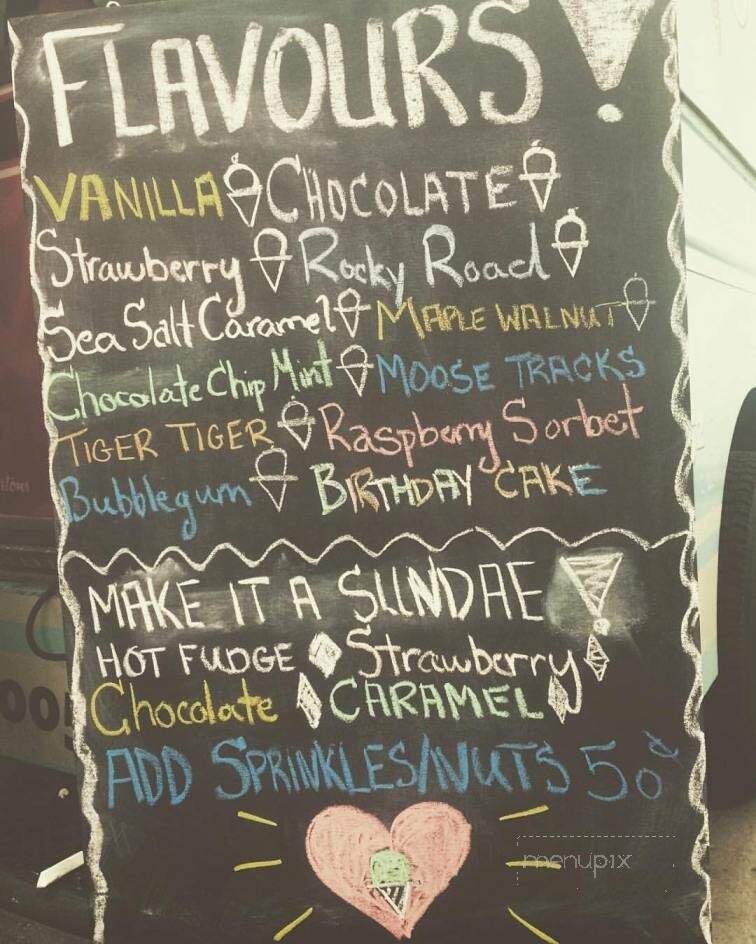 FLAVOURS!
VANILLA CHOCOLATE
Strawberry Rocky Road
Sea Salt Caramel MAPLE WALNUT
Chocolate Chip Mint MOOSE TRACKS
TIGER TIGER Raspberry Sorbet
Bubblegum BIRTHDAY CAKE
MAKE IT A SUNDAE!
HOT FUDGE Strawberry
Chocolate CARAMEL
ADD SPRINKLES/NUTS 50¢
menupix